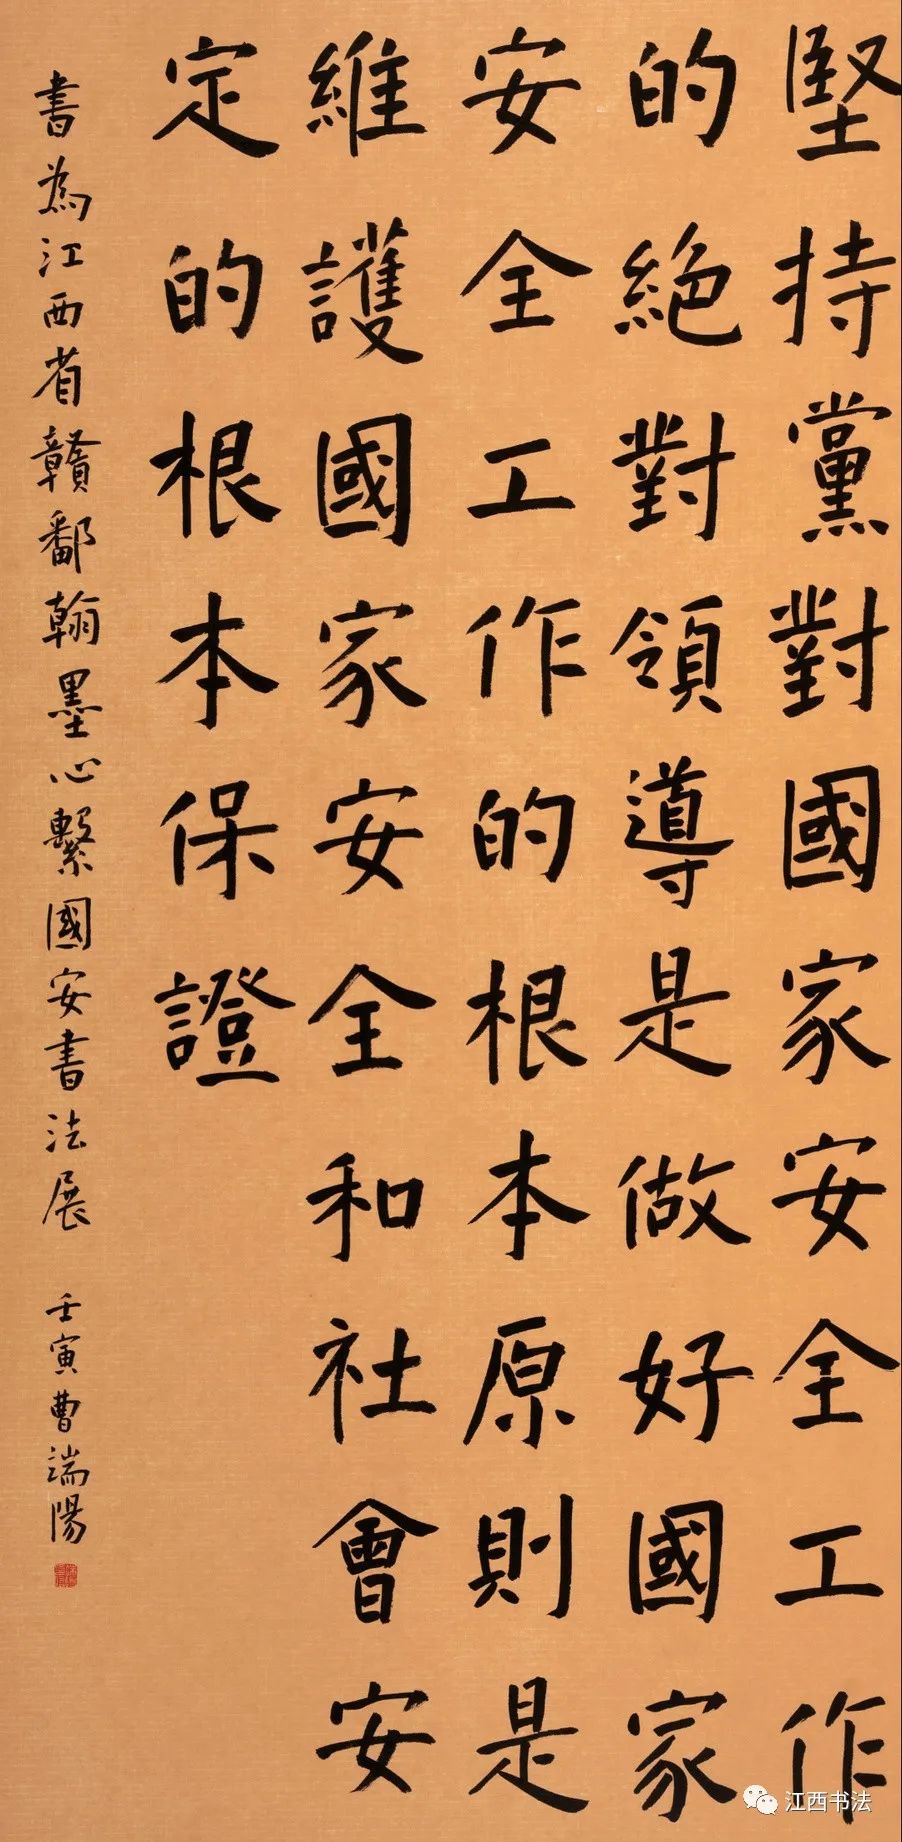 堅持黨對國家安全工作
的絕對領導是做好國家
安全工作的根本原則是
維護國家安全和社會安
定的根本保證
書為江西省贛鄱翰墨心繫國安書法展 壬寅曹端陽
江西书法